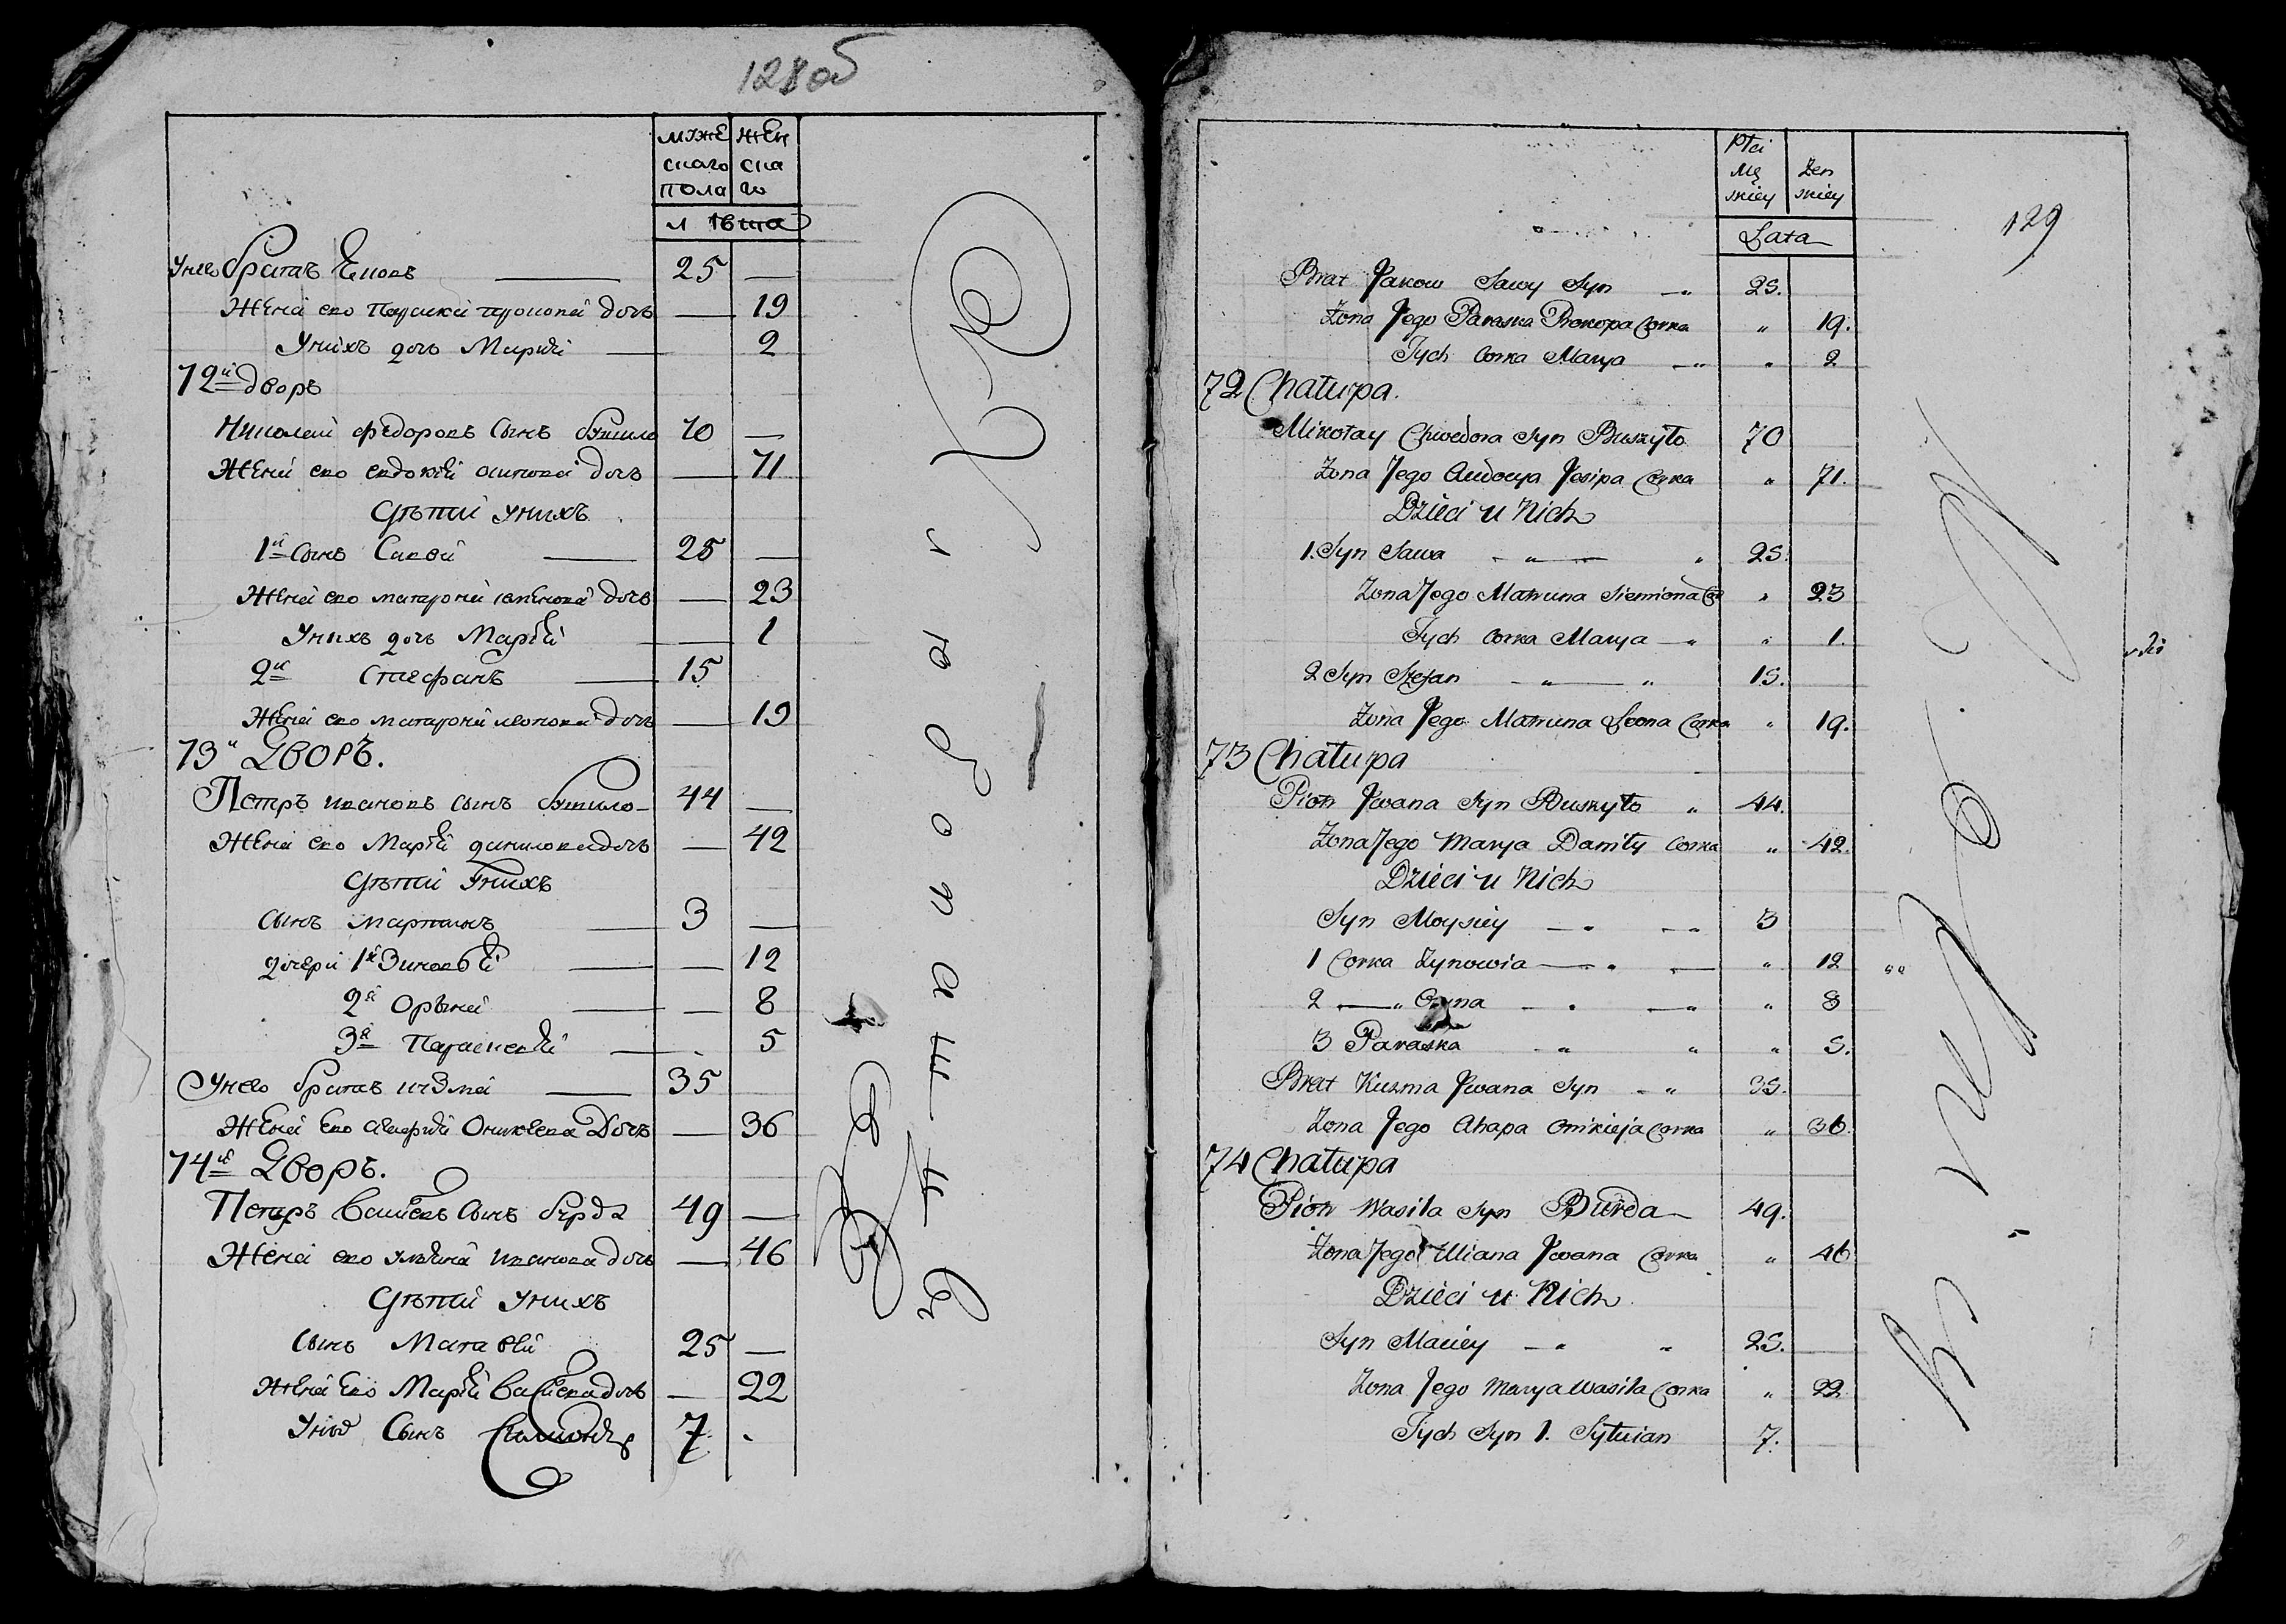 128об
мүже ского пола
жен ска го
лѣта
у него братъ Яковъ 25 —
жена его Параска прокопа дочь — 19
у нихъ дочь Мария — 2
72й дворъ
Николай федоровъ сынъ бушило 70 —
жена его евдокия осипова дочь — 71
Дѣти у нихъ
1й сынъ Сава 25 —
жена его матрона семенова дочь — 23
у нихъ дочь Мария — 1
2й Стефанъ 15
жена его матрона леонова дочь — 19
73й Дворъ.
Петръ ивановъ сынъ бушило 44 —
жена его Мария данилова дочь — 42
Дѣти у нихъ
сынъ 3 —
дочери 1я Зиновия — 12
2я Орына — 8
3я Параскева — 5
У него братъ кузма 35
жена его Оникиева дочь — 36
74й Дворъ.
Петръ Васиевъ сынъ бурда 49 —
жена его улияна иванова дочь — 46
Дѣти у нихъ
сынъ Матвей 25 —
жена его Мария Васиева дочь — 22
у них Сынъ 7
129
Płci Mę skiey
Żen skiey
Lata
Brat Jakow Sawy Syn 25.
Żona Jego Paraska Prokopa Corka " 19.
Tych Corka Marya " 2
72 Chałupa.
Mikołay Chwedora Syn Buszyło 70
Żona Jego Audocya Josipa Corka " 71.
Dzieci u Nich
1. Syn Sawa 25.
Żona Jego Matruna Siemiona Cor " 23
Tych Corka Marya " 1.
2 Syn Stefan 15.
Żona Jego Matruna Leona Corka " 19.
73 Chałupa
Piotr Jwana Syn Buszyło 44.
Żona Jego Marya Daniły Corka " 42.
Dzieci u Nich
Syn Moysiey 3
1 Corka Zynowia " 12
2 — " Oryna " 8
3 Paraska " 5.
Brat Kuzma Jwana Syn 35.
Żona Jego Ahapa Onikieja Corka " 36.
74 Chałupa
Piotr Wasila Syn Burda 49.
Żona Jego Uliana Jwana Corka " 46
Dzieci u Nich
Syn Maciey 25.
Żona Jego Marya Wasila Corka " 22
Tych Syn 1. Sylwian 7.